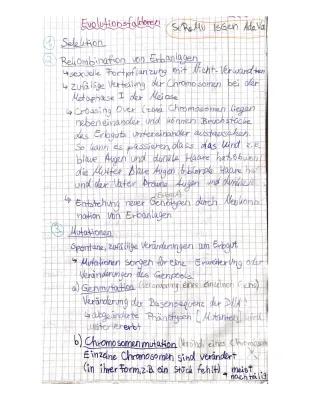 Evolutionsfaktoren SeReMu IsGen AdaVa
① Selektion
② Rekombination von Erbanlagen
↳ sexuelle Fortpflanzung mit Nicht-Verwandten
↳ zufällige Verteilung der Chromosomen bei der
Metaphase I der Meiose
↳ Crossing Over (zwei Chromosomen liegen
nebeneinander und können Bruchstücke
des Erbguts untereinander austauschen.
So kann es passieren dass das Kind z.B.
blaue Augen und dunkle Haare hat, obwohl
die Mutter blaue Augen & blonde Haare hat
und der Vater braune Augen und dunkle
↳ Entstehung neuer Genotypen durch Neukombi-
nation von Erbanlagen
③ Mutationen
spontane, zufällige Veränderungen am Erbgut
↳ Mutationen sorgen für eine Erweiterung oder
Veränderungen des Genpools.
a) Genmutation (Veränderung eines einzelnen Gens)
Veränderung der Basensequenz der DNA
↳ abgeänderte Phänotypen (Mutanten) wird
weitervererbt
b) Chromosomenmutation eines Chromosoms
Einzelne Chromosomen sind verändert
(in ihrer Form, z.B. ein Stück fehlt) → meist
nachteilig